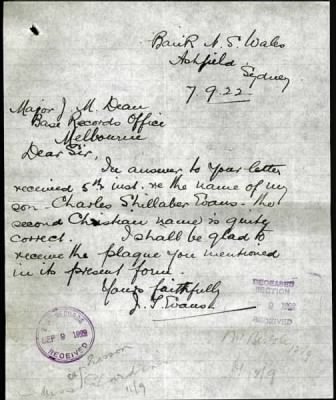 Bank N. S. Wales
Ashfield
Sydney
7.9.22.
Major J. M. Dean
Base Records Office
Melbourne
Dear Sir,
In answer to your letter
received 5th inst. re the name of my
son - Charles Shillaber Evans - the
second Christian name is quite
correct. I shall be glad to
receive the plaque you mentioned
in its present form.
Yours faithfully
J. S. Evans
DECEASED
SECTION
9 1922
RECEIVED
RECORDS
SEP 9 1922
RECEIVED
11/9